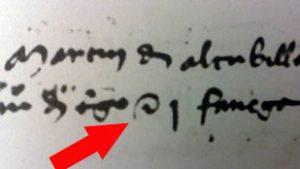 marcin de alcubille
de trigo @ 1 fanega